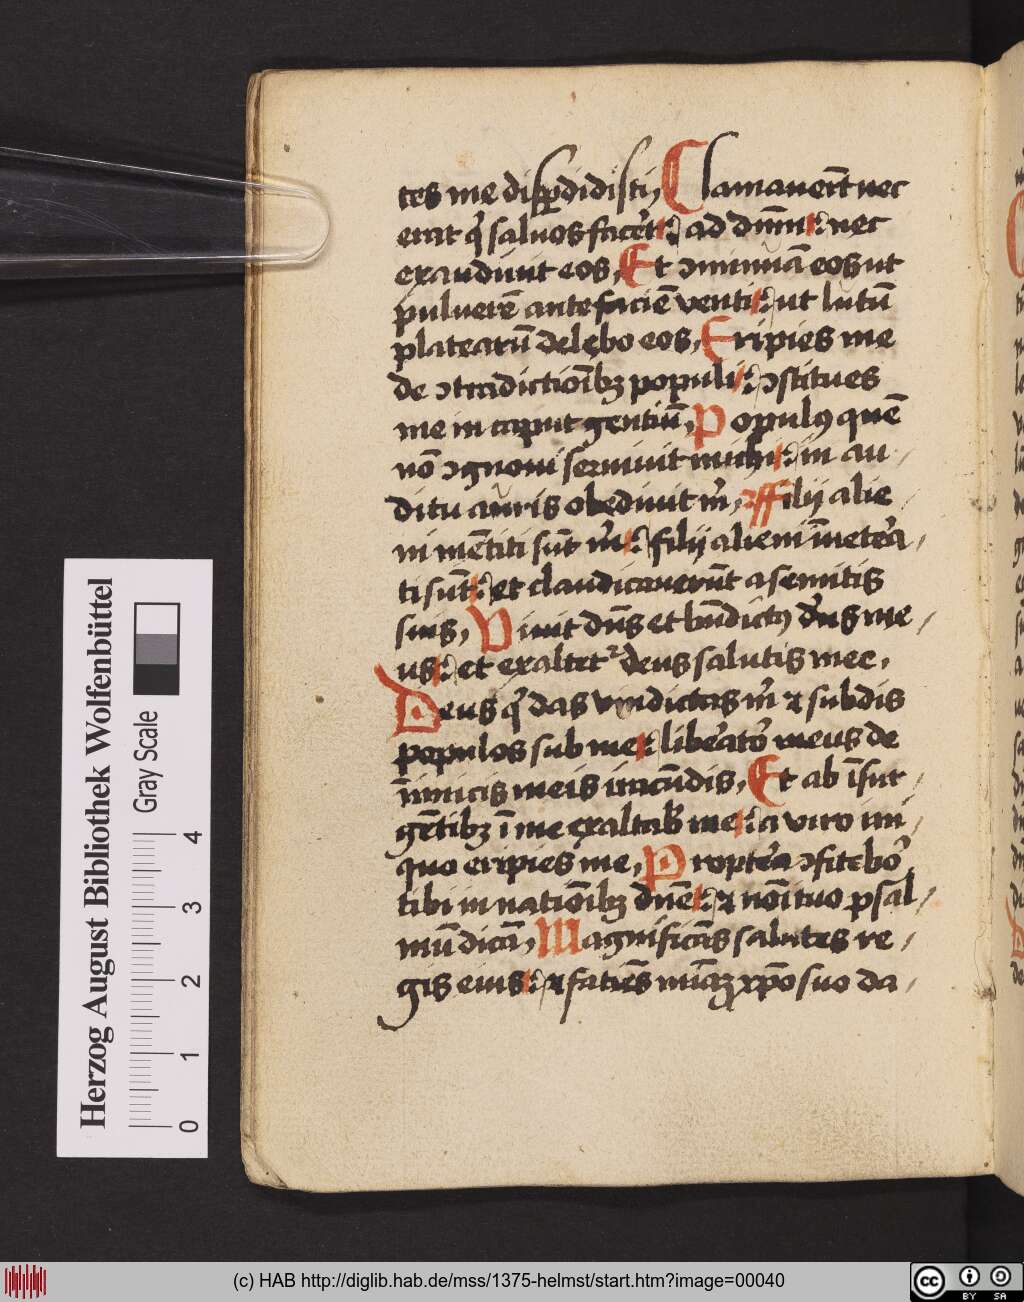 tes me disꝑdidisti, Clamauerūt nec
erat qͥ saluos facet᷑: ad dn̄m: nec
exaudiuit eos, Et ꝯminuā eos ut
puluerē ante faciē venti: ut lutū
platearū delebo eos, Eripies me
de ꝯtradictionībꝫ populi: ꝯstitues
me in caput gentiū, Populꝰ quē
nō ꝯgnoui seruiuit michi: in au
ditu auris obediuit m̊, Filij alie
ni mētiti sūt m̊: filij alieni īueteᷓa
ti sūt: et claudicauerūt a semitis
suis, Viuit dn̄s et bn̄dictꝰ dn̄s me
us: et exaltet᷑ deus salutis mee,
Deus qͥ das vindictas m̊ ⁊ subdis
populos sub me: libeᷓatoᷓ meus de
īnimicis meis iracūdis, Et ab īsur
gētibꝫ ī me exaltabᷤ me: a viro ini
quo eripies me, Propteᷓa ꝯfiteboᷓ
tibi in nationībꝫ dn̄e: ⁊ noī tuo psal
mū dicā, Magnificās salutes re
gis eius: ⁊ faciēs mīaꝫ xp̄o suo da
Herzog August Bibliothek Wolfenbüttel
Gray Scale
0 1 2 3 4
(c) HAB http://diglib.hab.de/mss/1375-helmst/start.htm?image=00040
cc BY SA